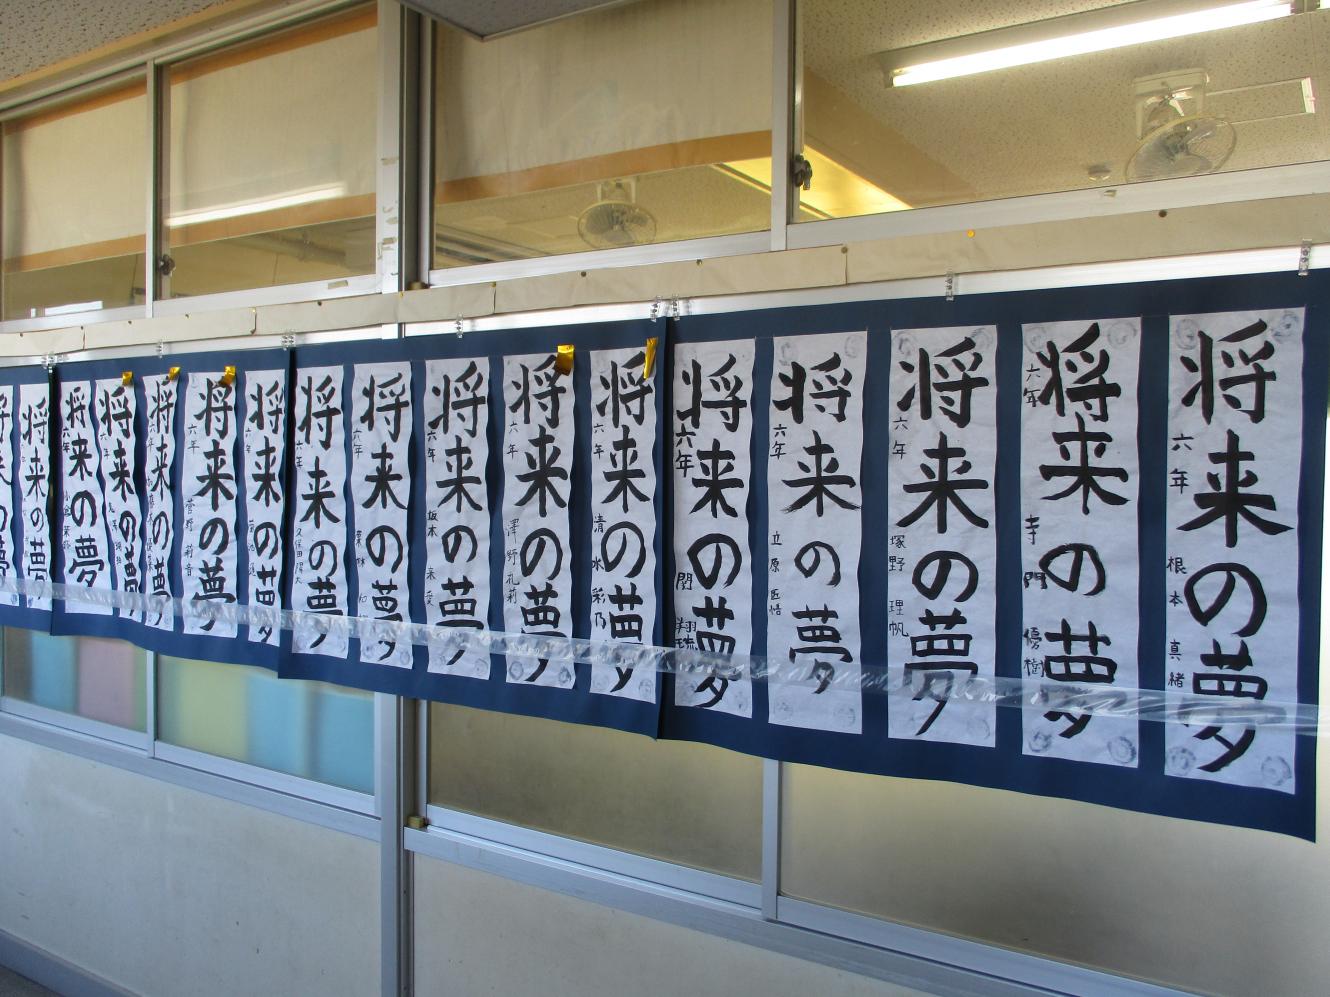 将来の夢
六年 根本 真緒
将来の夢
六年 寺門 優樹
将来の夢
六年 塚野 理帆
将来の夢
六年 立原
将来の夢
六年 関
将来の夢
六年 清水 彩乃
将来の夢
六年 澤野 礼莉
将来の夢
六年 坂本 来愛
将来の夢
六年 栗林
将来の夢
六年 久保田 陽大
将来の夢
六年 菊池
将来の夢
六年 菅野 莉音
将来の夢
六年
将来の夢
六年
将来の夢
六年
将来の夢